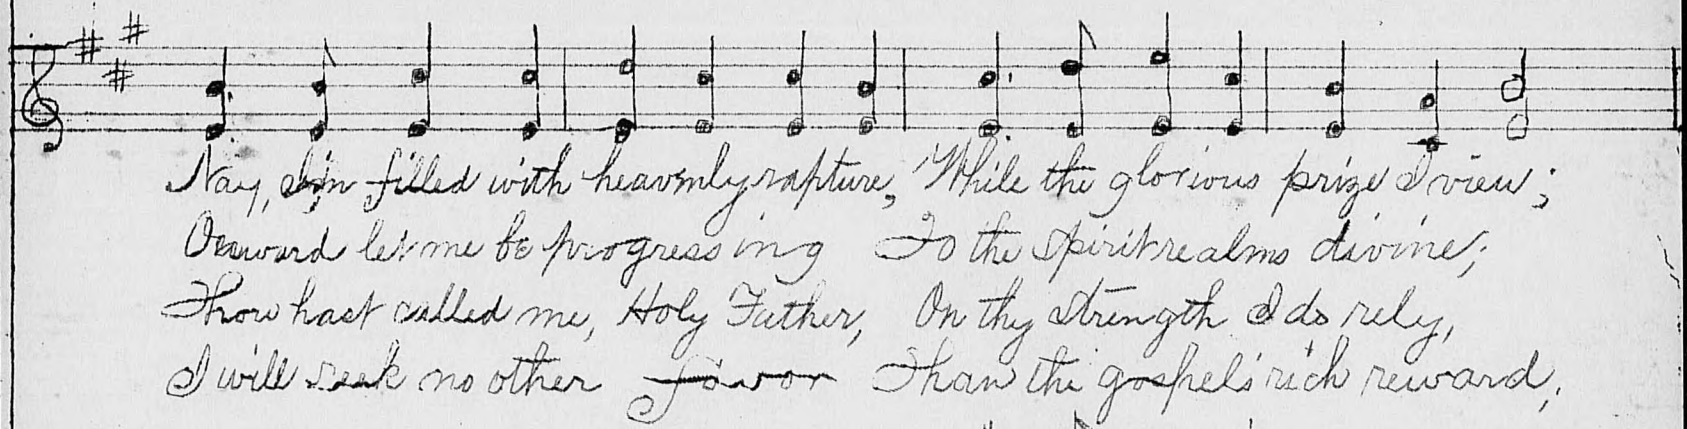 Nay, I'm filled with heavenly rapture, While the glorious prize I view;
Onward let me be progressing To the spirit realms divine;
Thou hast called me, Holy Father, On thy strength I do rely,
I will seek no other favor Than the gospel's rich reward,